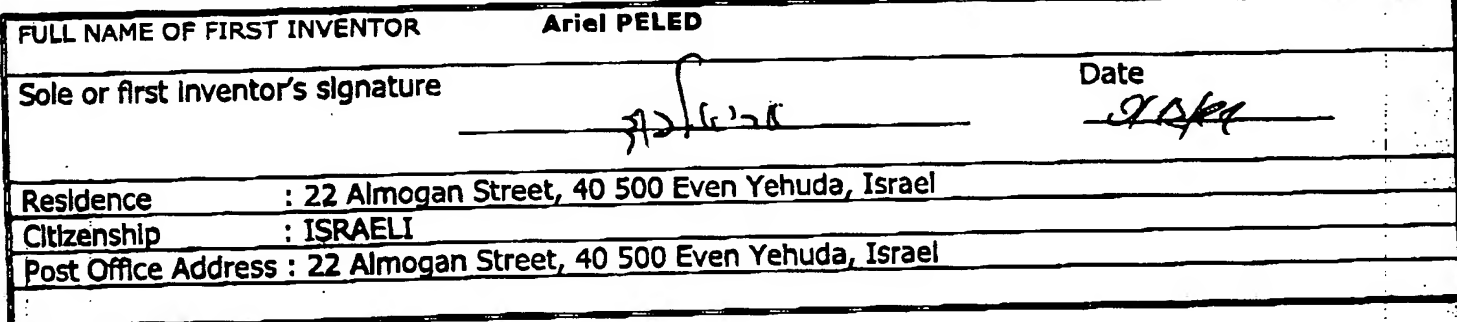 FULL NAME OF FIRST INVENTOR Ariel PELED
Sole or first inventor's signature
Date
Residence : 22 Almogan Street, 40 500 Even Yehuda, Israel
Citizenship : ISRAELI
Post Office Address : 22 Almogan Street, 40 500 Even Yehuda, Israel